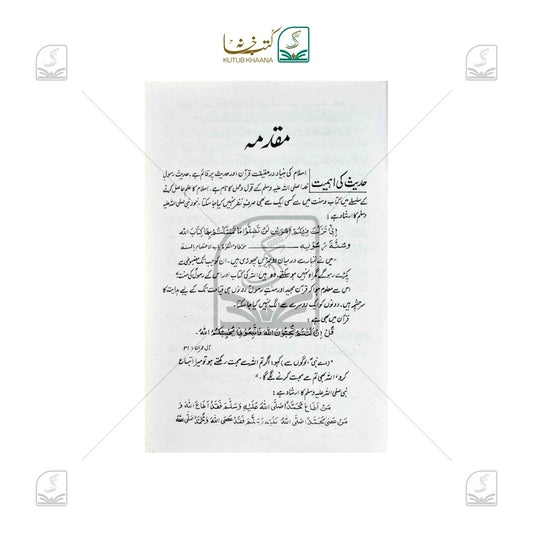 کتب خانہ
KUTUB KHAANA
مقدمہ
حدیث کی اہمیت
اسلام کی بنیاد درحقیقت قرآن اور حدیث پر قائم ہے، حدیث رسولِ
خدا صلی اللہ علیہ وسلم کے قول و عمل کا نام ہے۔ اسلام کا علم حاصل کرنے
کے سلسلے میں کتاب و سنت میں سے کسی ایک سے بھی صرفِ نظر نہیں کیا جاسکتا، خود نبی صلی اللہ علیہ
وسلم کا ارشاد ہے :
اِنِّی تَرَکْتُ فِیْکُمْ اَمْرَیْنِ لَنْ تَضِلُّوْا مَا تَمَسَّکْتُمْ بِهِمَا کِتَابَ اللّٰهِ
وَسُنَّةَ رَسُوْلِهٖ
"میں نے تمہارے درمیان دو چیزیں چھوڑی ہیں، ان کو جب تک مضبوطی سے
پکڑے رہو گے گمراہ نہیں ہو سکتے، وہ ہیں اللہ کی کتاب اور اس کے رسول کی سنت"
اس سے معلوم ہوا کہ قرآن مجید اور سنتِ رسول دونوں ہی قیامت تک کے لیے ہدایت کا
سرچشمہ ہیں۔ دونوں کو ایک دوسرے سے الگ نہیں کیا جاسکتا۔
قرآن میں بھی ہے :
قُلْ اِنْ کُنْتُمْ تُحِبُّوْنَ اللّٰهَ فَاتَّبِعُوْنِیْ یُحْبِبْکُمُ اللّٰهُ
آل عمران : ۳۱
"(اے نبیؐ لوگوں سے) کہو: اگر تم اللہ سے محبت رکھتے ہو تو میرا اتباع
کرو، اللہ بھی تم سے محبت کرنے لگے گا۔"
نبی صلی اللہ علیہ وسلم کا ارشاد ہے :
مَنْ اَطَاعَ مُحَمَّدًا صَلَّی اللّٰهُ عَلَیْهِ وَسَلَّمَ فَقَدْ اَطَاعَ اللّٰهَ وَ
مَنْ عَصٰی مُحَمَّدًا صَلَّی اللّٰهُ عَلَیْهِ وَسَلَّمَ فَقَدْ عَصَی اللّٰهَ وَمُحَمَّدٌ صَلَّی اللّٰهُ